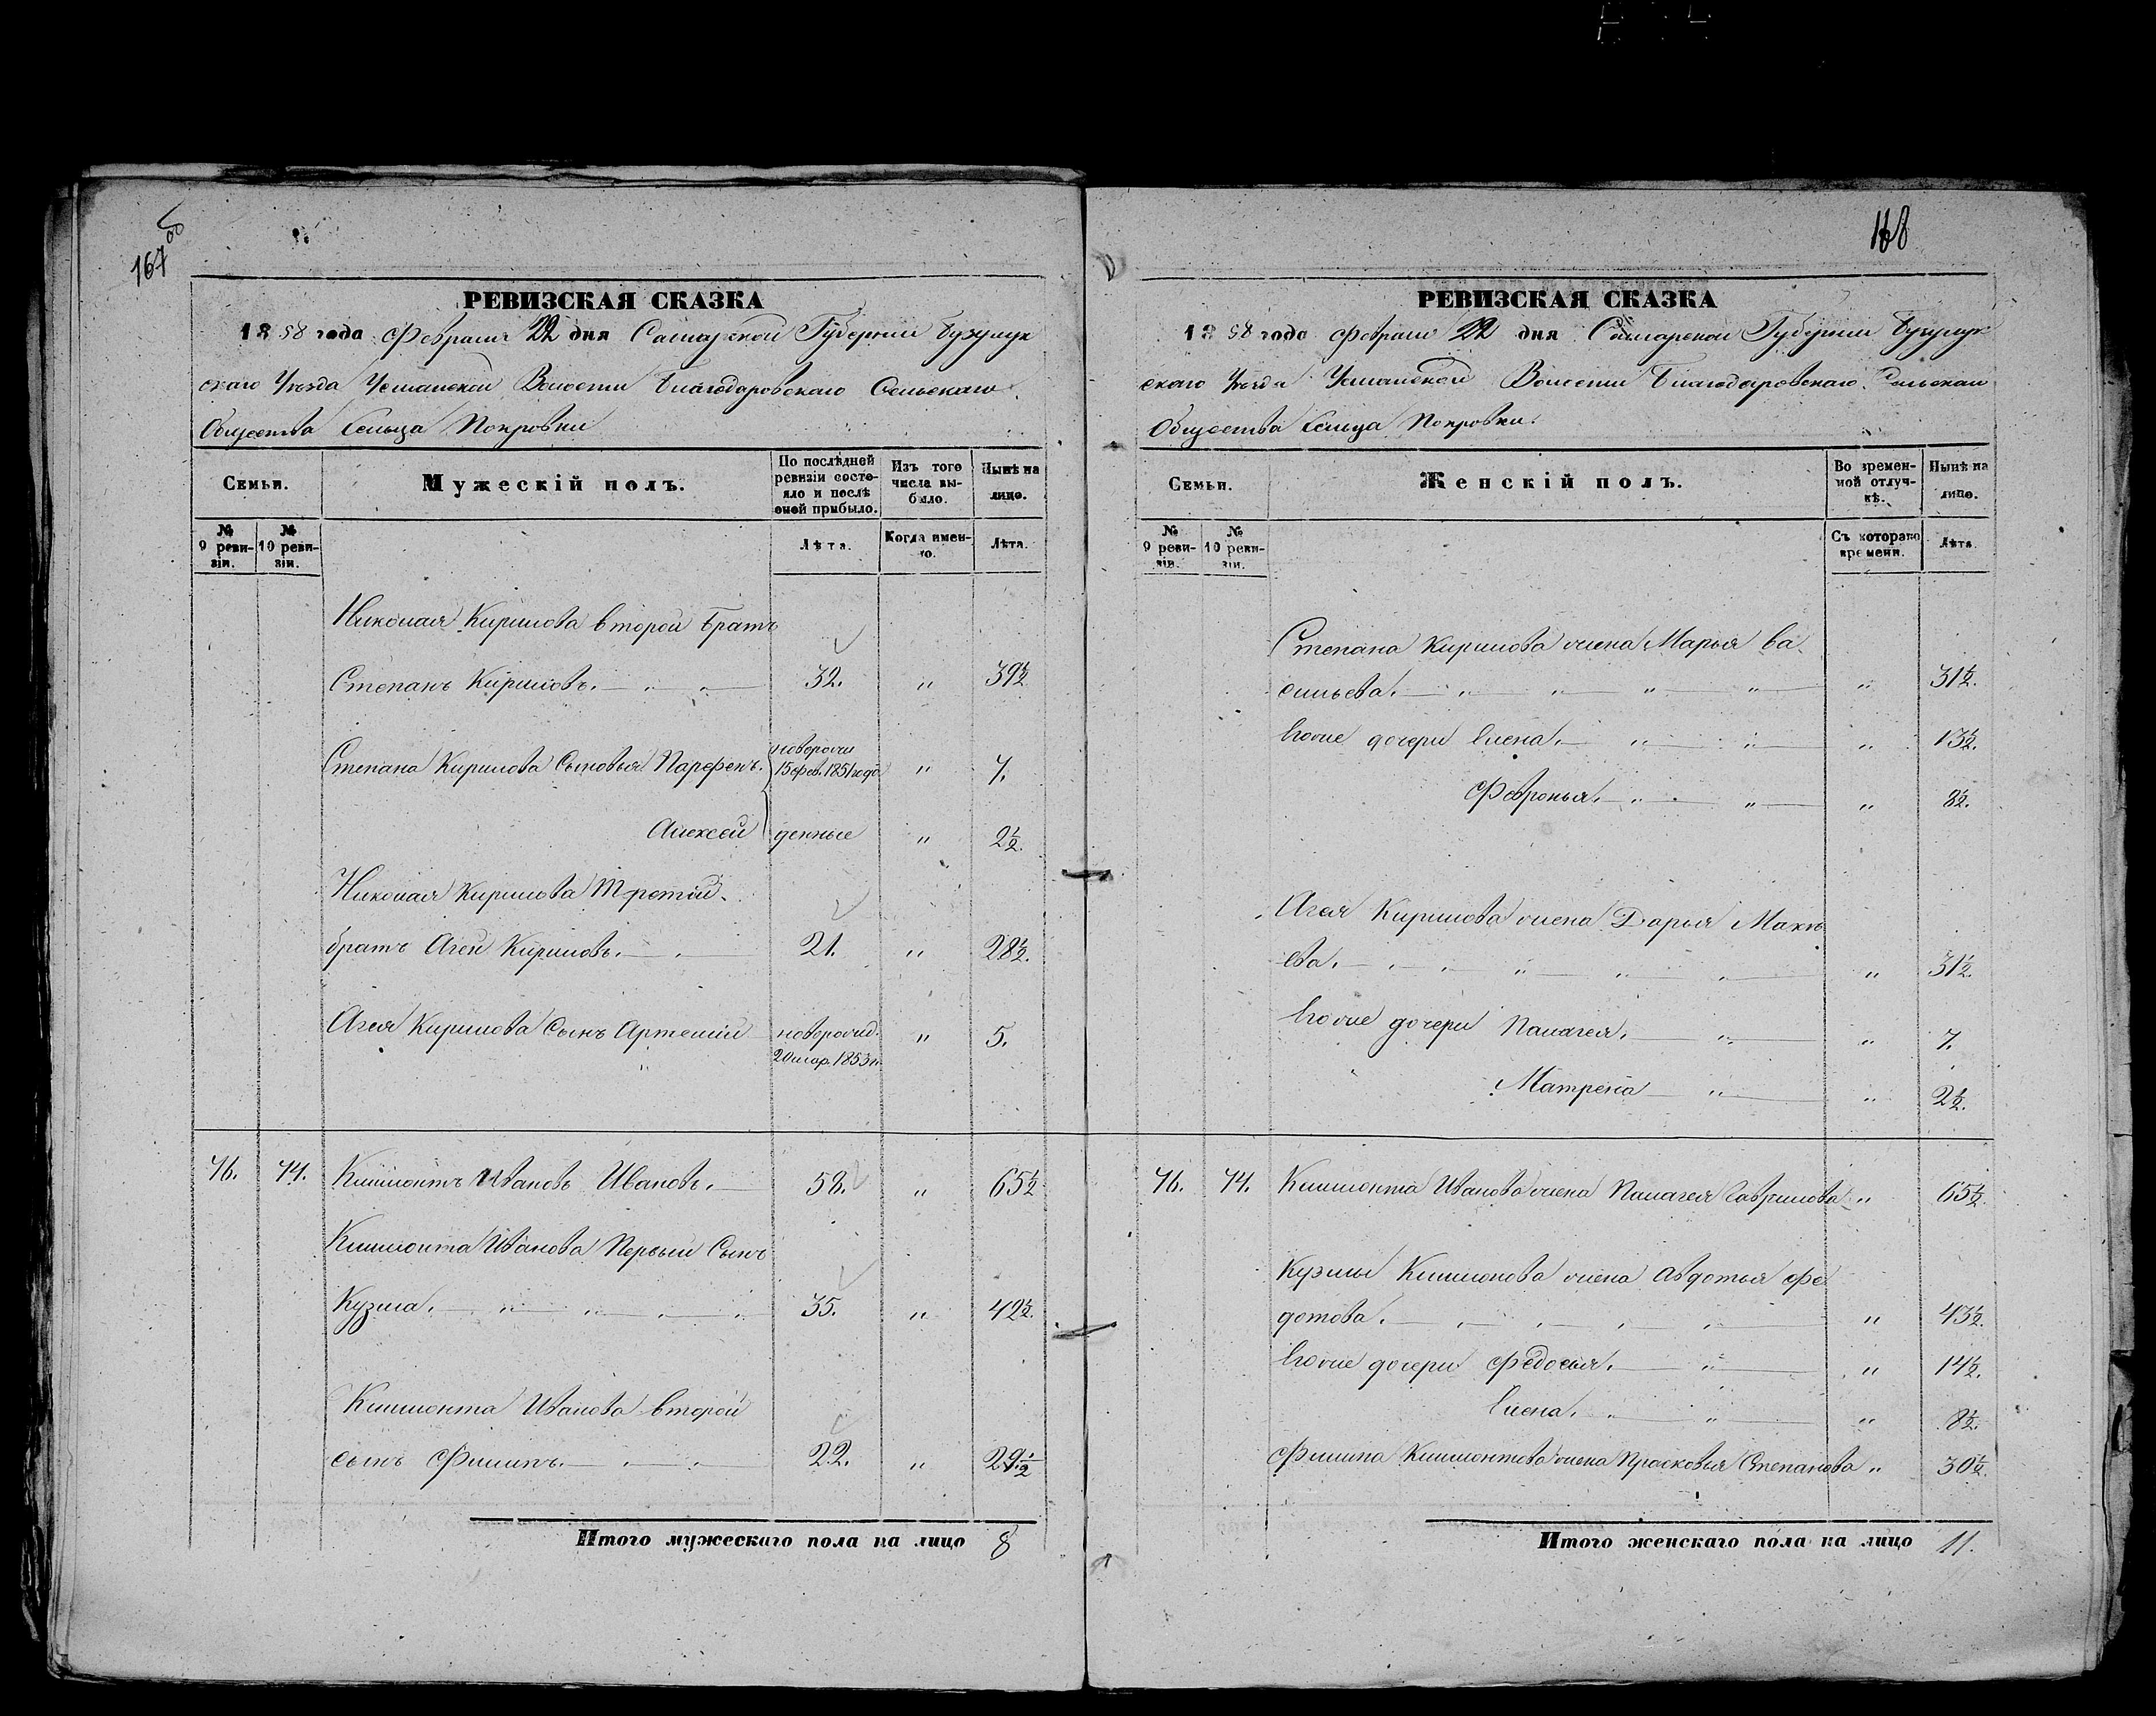 167 об
РЕВИЗСКАЯ СКАЗКА
1858 года Февраля 22 дня Самарской Губернии Бузулук
скаго Уѣзда Усманской Волости Благодаровскаго Сельскаго
Общества Сельца Покровки
Семьи.
Мужескій полъ.
По послѣдней ревизіи состояло и послѣ оной прибыло.
Изъ того числа выбыло.
Нынѣ на лицо.
№ 9 ревизіи.
№ 10 ревизіи.
Лѣта.
Когда именно.
Лѣта.
Николая Кирилова второй Братъ
Степанъ Кириловъ. 32. " 39½
Степана Кирилова Сыновья Парфенъ. новорож 15 фев. 1851 года " 7.
Алексей денные " 2½.
Николая Кирилова Третій
братъ Агей Кириловъ. 21. " 28½.
Агея Кирилова Сынъ Артемий новорожд. 20 мар. 1853 г. " 5.
76. 74. Климонтъ Ивановъ Ивановъ. 58. " 65½
Климонта Иванова Первый Сынъ
Кузма. 35. " 42½.
Климонта Иванова второй
сынъ Филипъ. 22. " 29½
Итого мужескаго пола на лицо 8
168
РЕВИЗСКАЯ СКАЗКА
1858 года Февраля 22 дня Самарской Губернии Бузулук
скаго Уѣзда Усманской Волости Благодаровскаго Сельскаго
Общества Сельца Покровки.
Семьи.
Женскій полъ.
Во временной отлучкѣ.
Нынѣ на лицо.
№ 9 ревизіи.
№ 10 ревизіи.
Съ котораго времени.
Лѣта.
Степана Кирилова жена Марья Ва
сильева. " 31½.
Ево же дочери Елена. " 13½.
Февронья. " 8½.
Агея Кирилова жена Дарья Макѣ
ева. " 31½.
Ево же дочери Палагея. " 7.
Матрена " 2½.
76. 74. Климонта Иванова жена Палагея Гаврилова " 65½.
Кузмы Климонова жена Авдотья Фе
дотова. " 43½.
Ево же дочери Федосья. " 14½.
Елена. " 8½.
Филипа Климонтова жена Прасковья Степанова " 30½.
Итого женскаго пола на лицо 11.